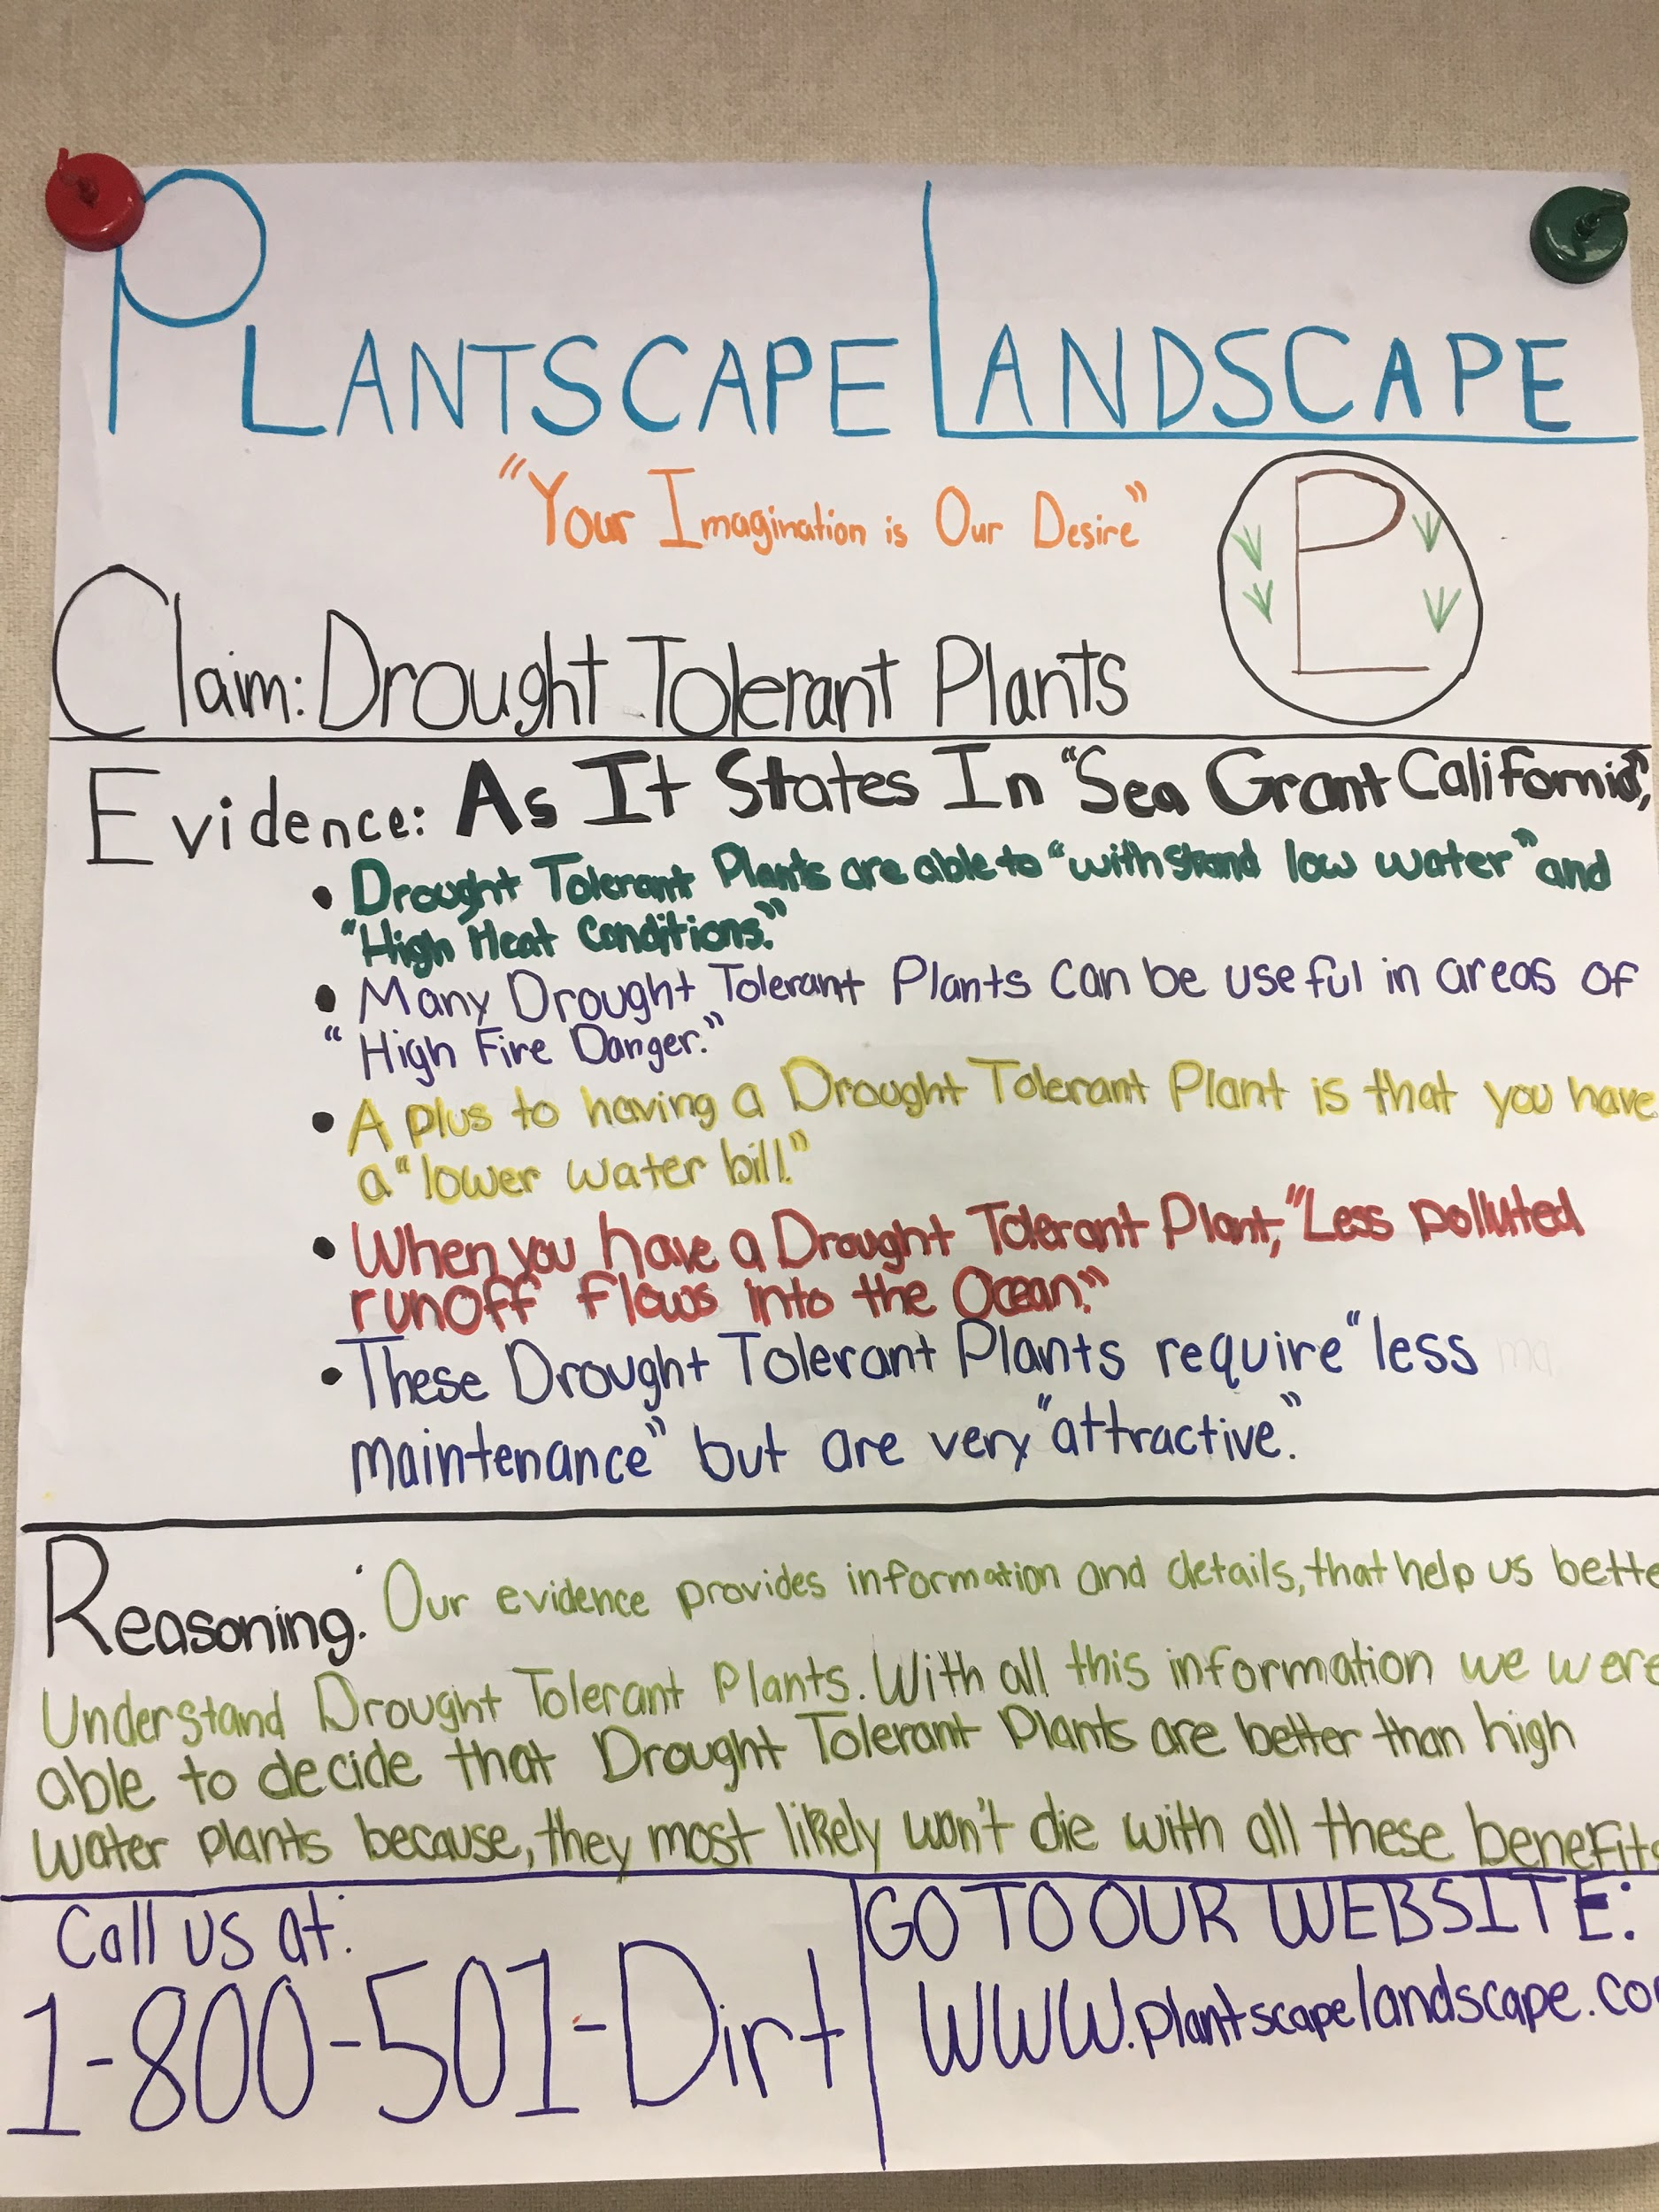 PLANTSCAPE LANDSCAPE
"Your Imagination is Our Desire"
PL
Claim: Drought Tolerant Plants
Evidence: As It States In "Sea Grant California",
• Drought Tolerant Plants are able to "withstand low water" and
"High Heat Conditions."
• Many Drought Tolerant Plants can be useful in areas of
"High Fire Danger."
• A plus to having a Drought Tolerant Plant is that you have
a "lower water bill."
• When you have a Drought Tolerant Plant, "Less polluted
runoff flows into the Ocean."
• These Drought Tolerant Plants require "less
maintenance" but are very "attractive."
Reasoning: Our evidence provides information and details, that help us bette
Understand Drought Tolerant Plants. With all this information we were
able to decide that Drought Tolerant Plants are better than high
water plants because, they most likely won't die with all these benefits
Call us at:
1-800-501-Dirt
GO TO OUR WEBSITE:
WWW.plantscapelandscape.co